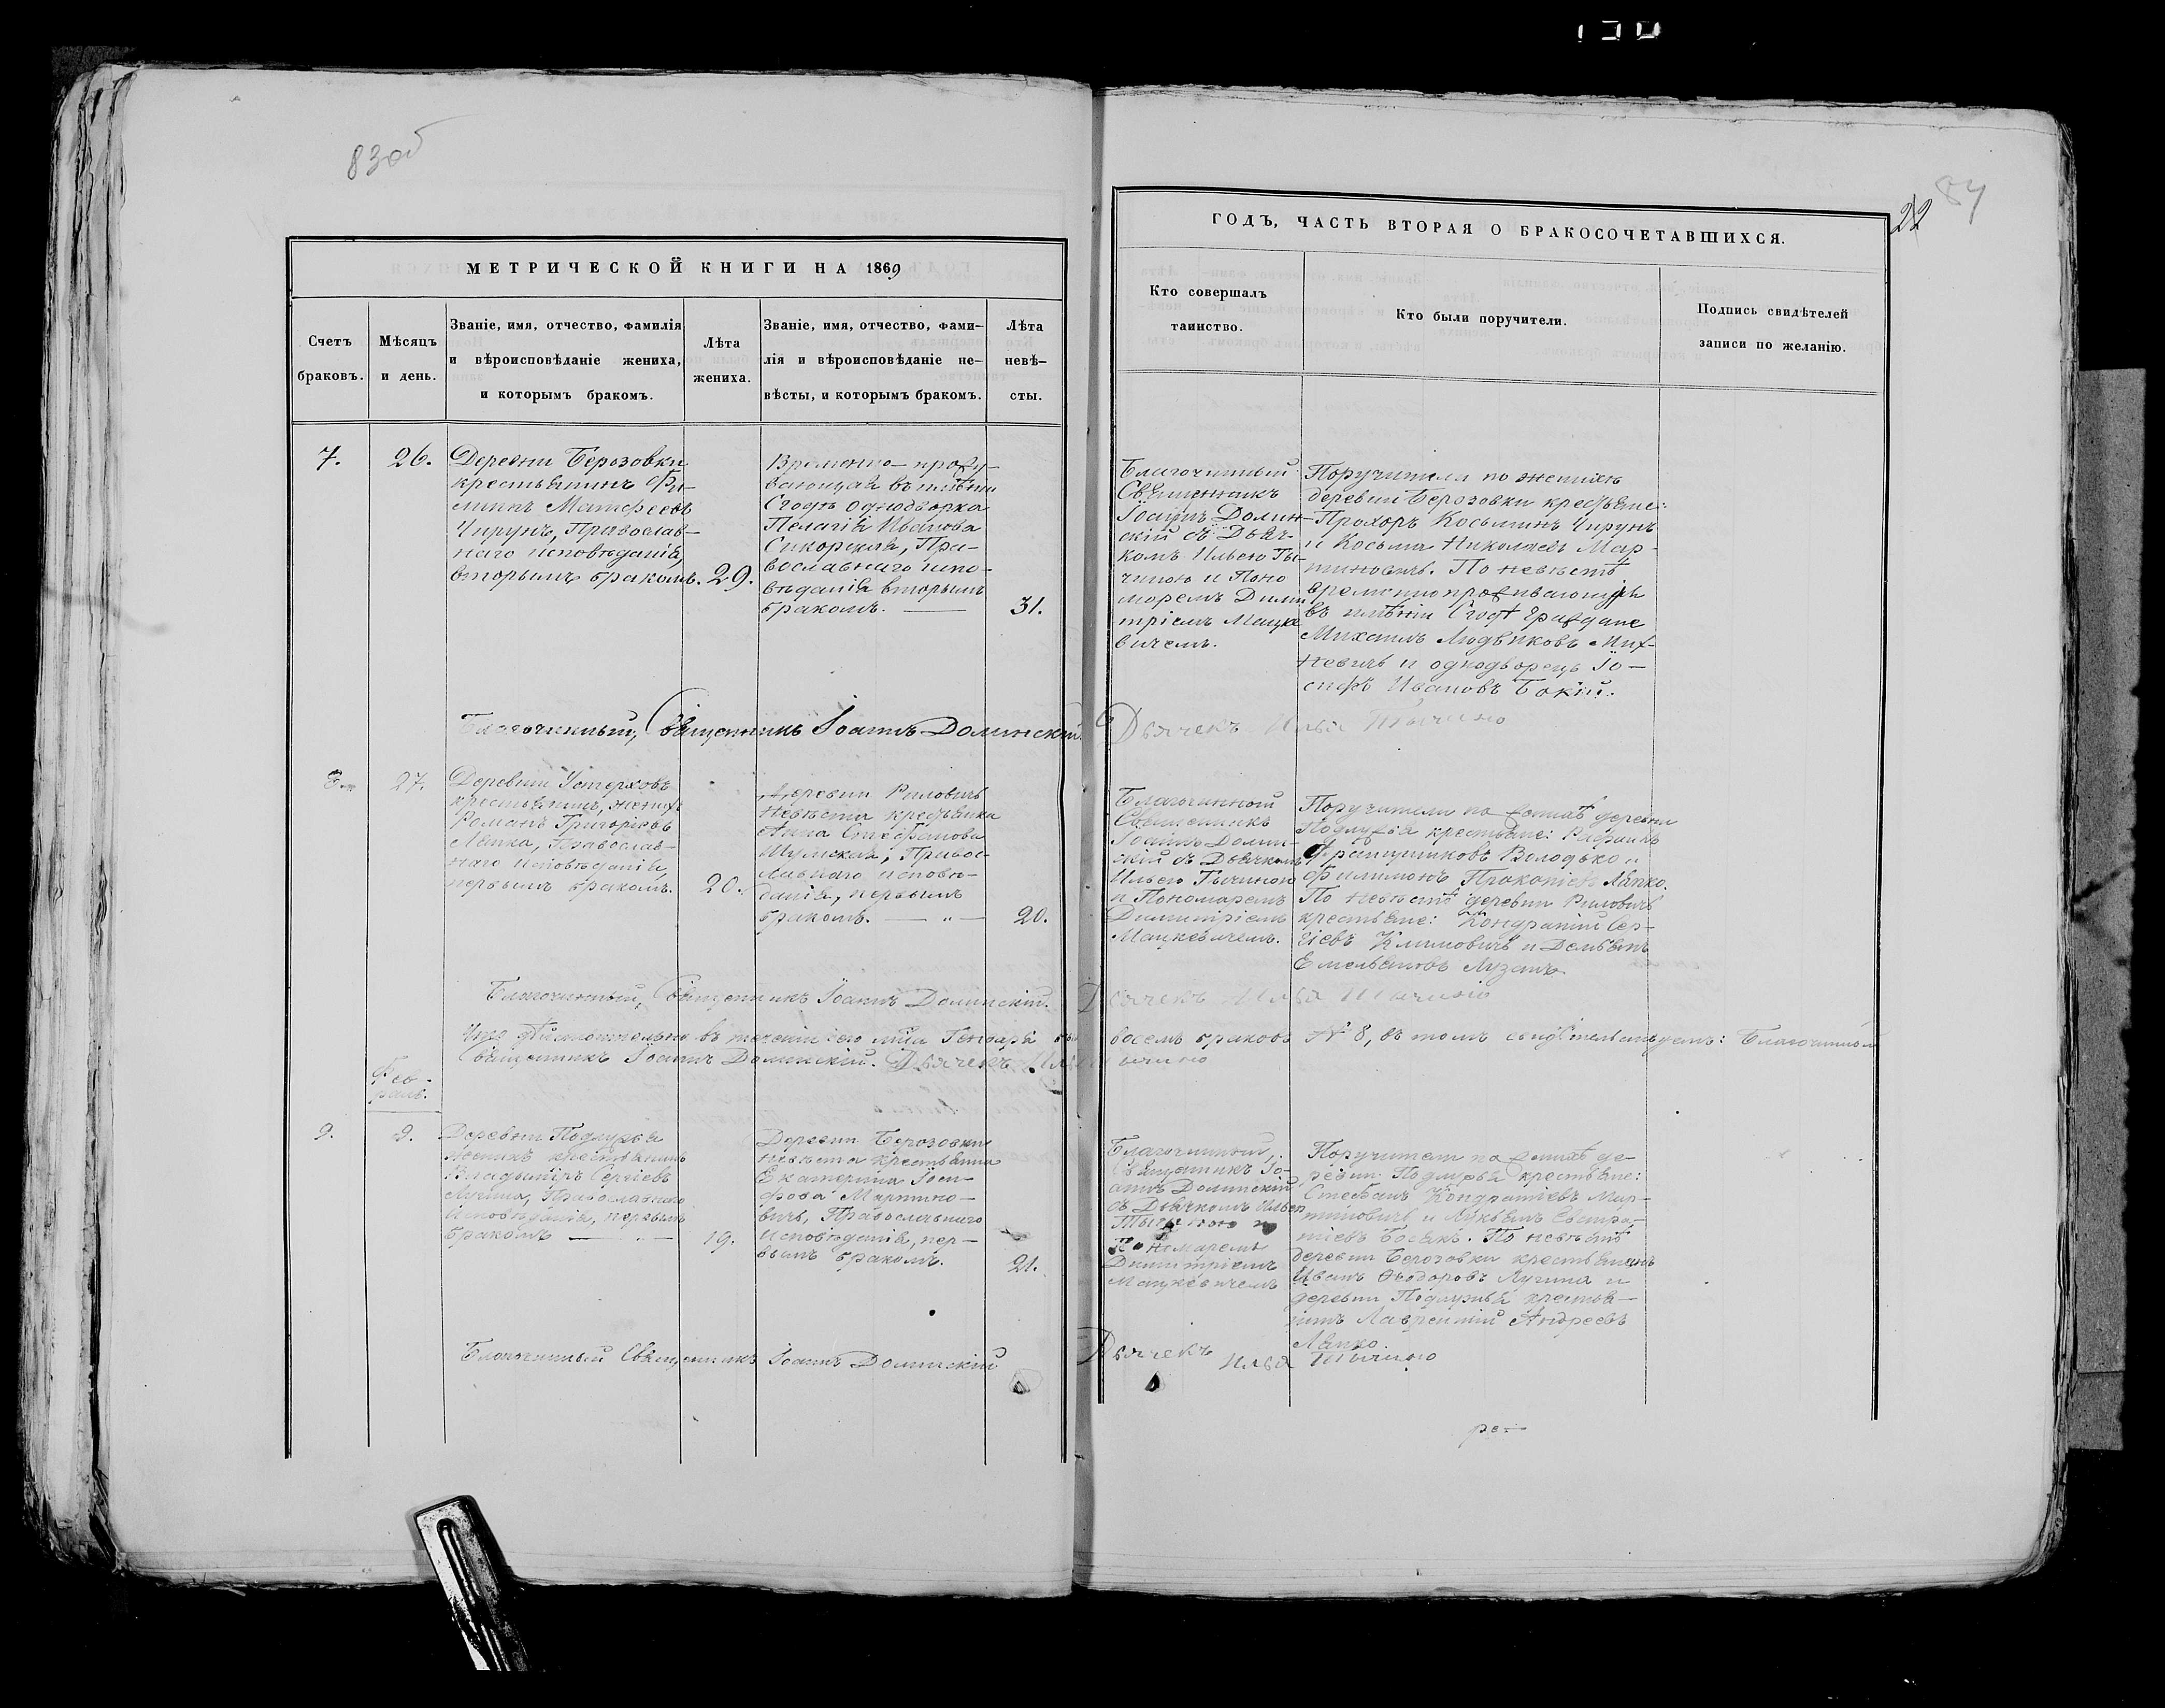 130
83об
84
22
МЕТРИЧЕСКОЙ КНИГИ НА 1869
ГОДЪ, ЧАСТЬ ВТОРАЯ О БРАКОСОЧЕТАВШИХСЯ.
Счетъ
браковъ.
Мѣсяцъ
и день.
Званіе, имя, отчество, фамилія
и вѣроисповѣданіе жениха,
и которымъ бракомъ.
Лѣта
жениха.
Званіе, имя, отчество, фами-
лія и вѣроисповѣданіе не-
вѣсты, и которымъ бракомъ.
Лѣта
невѣ-
сты.
Кто совершалъ
таинство.
Кто были поручители.
Подпись свидѣтелей
записи по желанію.
7.
26.
Деревни Берозовки
крестьянинъ
Матфеевъ
Чирунъ, Православ-
наго исповѣданія,
вторымъ бракомъ.
29.
Временно-прожи-
вающая въ имѣніи
однодворка
Пелагія Иванова
Сикорская, Пра-
вославнаго испо-
вѣданія вторымъ
бракомъ.
31.
Благочинный
Священникъ
Іоаннъ Долин-
скій съ Дьяч-
комъ Ильею Ты-
чиною и Поно
моремъ Дими
тріемъ Мацке
вичемъ.
Поручители по женихѣ
деревни Берозовки крестьяне:
Прохоръ Косьминъ Чирунъ
и Косьма Николаевъ Мар-
тиновичъ. По невѣстѣ
временно проживающіе
въ имѣніи граждане
Михаилъ Людвиковъ Мих-
невичъ и однодворецъ Іо-
сифъ Ивановъ Бокій.
Благочинный, Священникъ Іоаннъ Долинскій.
Дьячекъ Илья Тычино
8.
27.
Деревни
крестьянинъ, женихъ
Романъ Григоріевъ
Лапка, Православ-
наго исповѣданія,
первымъ бракомъ.
20.
Деревни Риловичъ
невѣста крестьянка
Анна Стефанова
Шумская, Правос-
лавнаго исповѣ-
данія, первымъ
бракомъ. — „ —
20.
Благочинной
Священникъ
Іоаннъ Долин-
скій съ Дьячкомъ
Ильею Тычиною
и Пономаремъ
Димитріемъ
Мацкевичемъ.
Поручители по женихѣ деревни
Подлужья крестьяне:
Володько и
Филимонъ Прокопіевъ Лапко.
По невѣстѣ деревни Риловичъ
крестьяне: Кондратій Сер-
гіевъ Климовичъ и Демьянъ
Емельяновъ Лузанъ
Благочинный, Священникъ Іоаннъ Долинскій.
Дьячекъ Илья Тычино
Что дѣйствительно въ теченіи сего мѣца Генваря
восемь браковъ № 8, въ томъ свидѣтельствуемъ: Благочинный
Священникъ Іоаннъ Долинскій. Дьячекъ Илья Тычино
Фев-
раль.
9.
9.
Деревни Подлужья
женихъ крестьянинъ
Владыміръ Сергіевъ
Лучина, Православнаго
Исповѣданія, первымъ
бракомъ — „ —
19.
Деревни Берозовки
невѣста крестьянка
Екатерина Іоси-
фова Мартино-
вичъ, Православнаго
Исповѣданія, пер-
вымъ бракомъ.
21.
Благочинный,
Священникъ Іо-
аннъ Долинскій
съ Дьячкомъ Ильею
Тычиною и
Пономаремъ
Димитріемъ
Мацкевичемъ
Поручители по женихѣ де-
ревни Подлужья крестьяне:
Стефанъ Кондратіевъ Мар-
тиновичъ и Лукьянъ Евстра-
тіевъ Босакъ. По невѣстѣ
деревни Берозовки крестьянинъ
Иванъ Ѳеодоровъ Лучина и
деревни Подлужья крестья-
нинъ Лаврентій Андреевъ
Лапко.
Благочинный Священникъ Іоаннъ Долинскій
Дьячекъ Илья Тычино
ре—